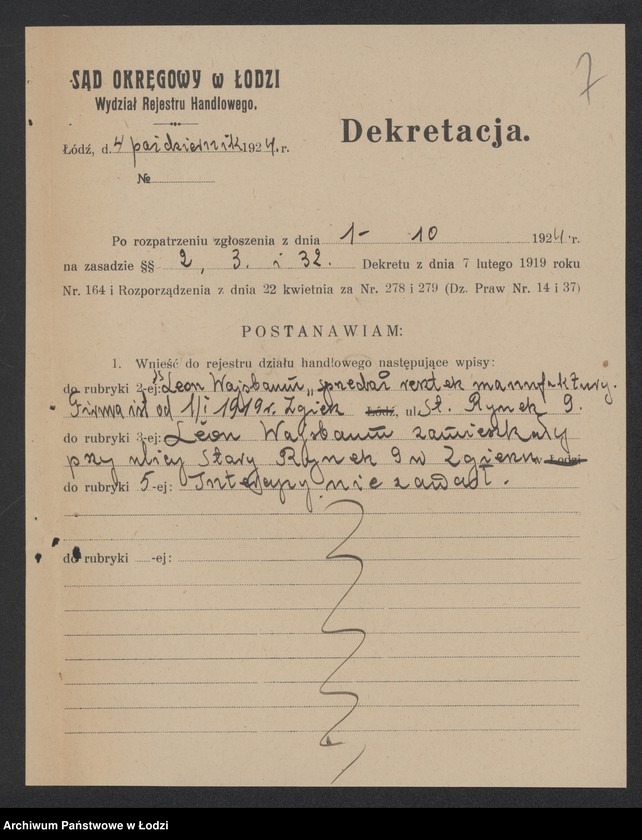 7
SĄD OKRĘGOWY w ŁODZI
Wydział Rejestru Handlowego.
Dekretacja.
Łódź, d. 4 październik 1924. r.
№
Po rozpatrzeniu zgłoszenia z dnia 1- 10 1924 r.
na zasadzie §§ 2, 3. i 32. Dekretu z dnia 7 lutego 1919 roku
Nr. 164 i Rozporządzenia z dnia 22 kwietnia za Nr. 278 i 279 (Dz. Praw Nr. 14 i 37)
POSTANAWIAM:
1. Wnieść do rejestru działu handlowego następujące wpisy:
do rubryki 2-ej: „Leon Wajsbaum„ sprzedaż resztek manufaktury.
Firma ist od 1/I 1919 r. Zgierz Łódź, ul St. Rynek 9.
do rubryki 3-ej: Leon Wajsbaum zamieszkały
przy ulicy Stary Rynek 9 w Zgierzu w Łodzi
do rubryki 5-ej: Intercyzy nie zawarł.
do rubryki -ej:
Archiwum Państwowe w Łodzi